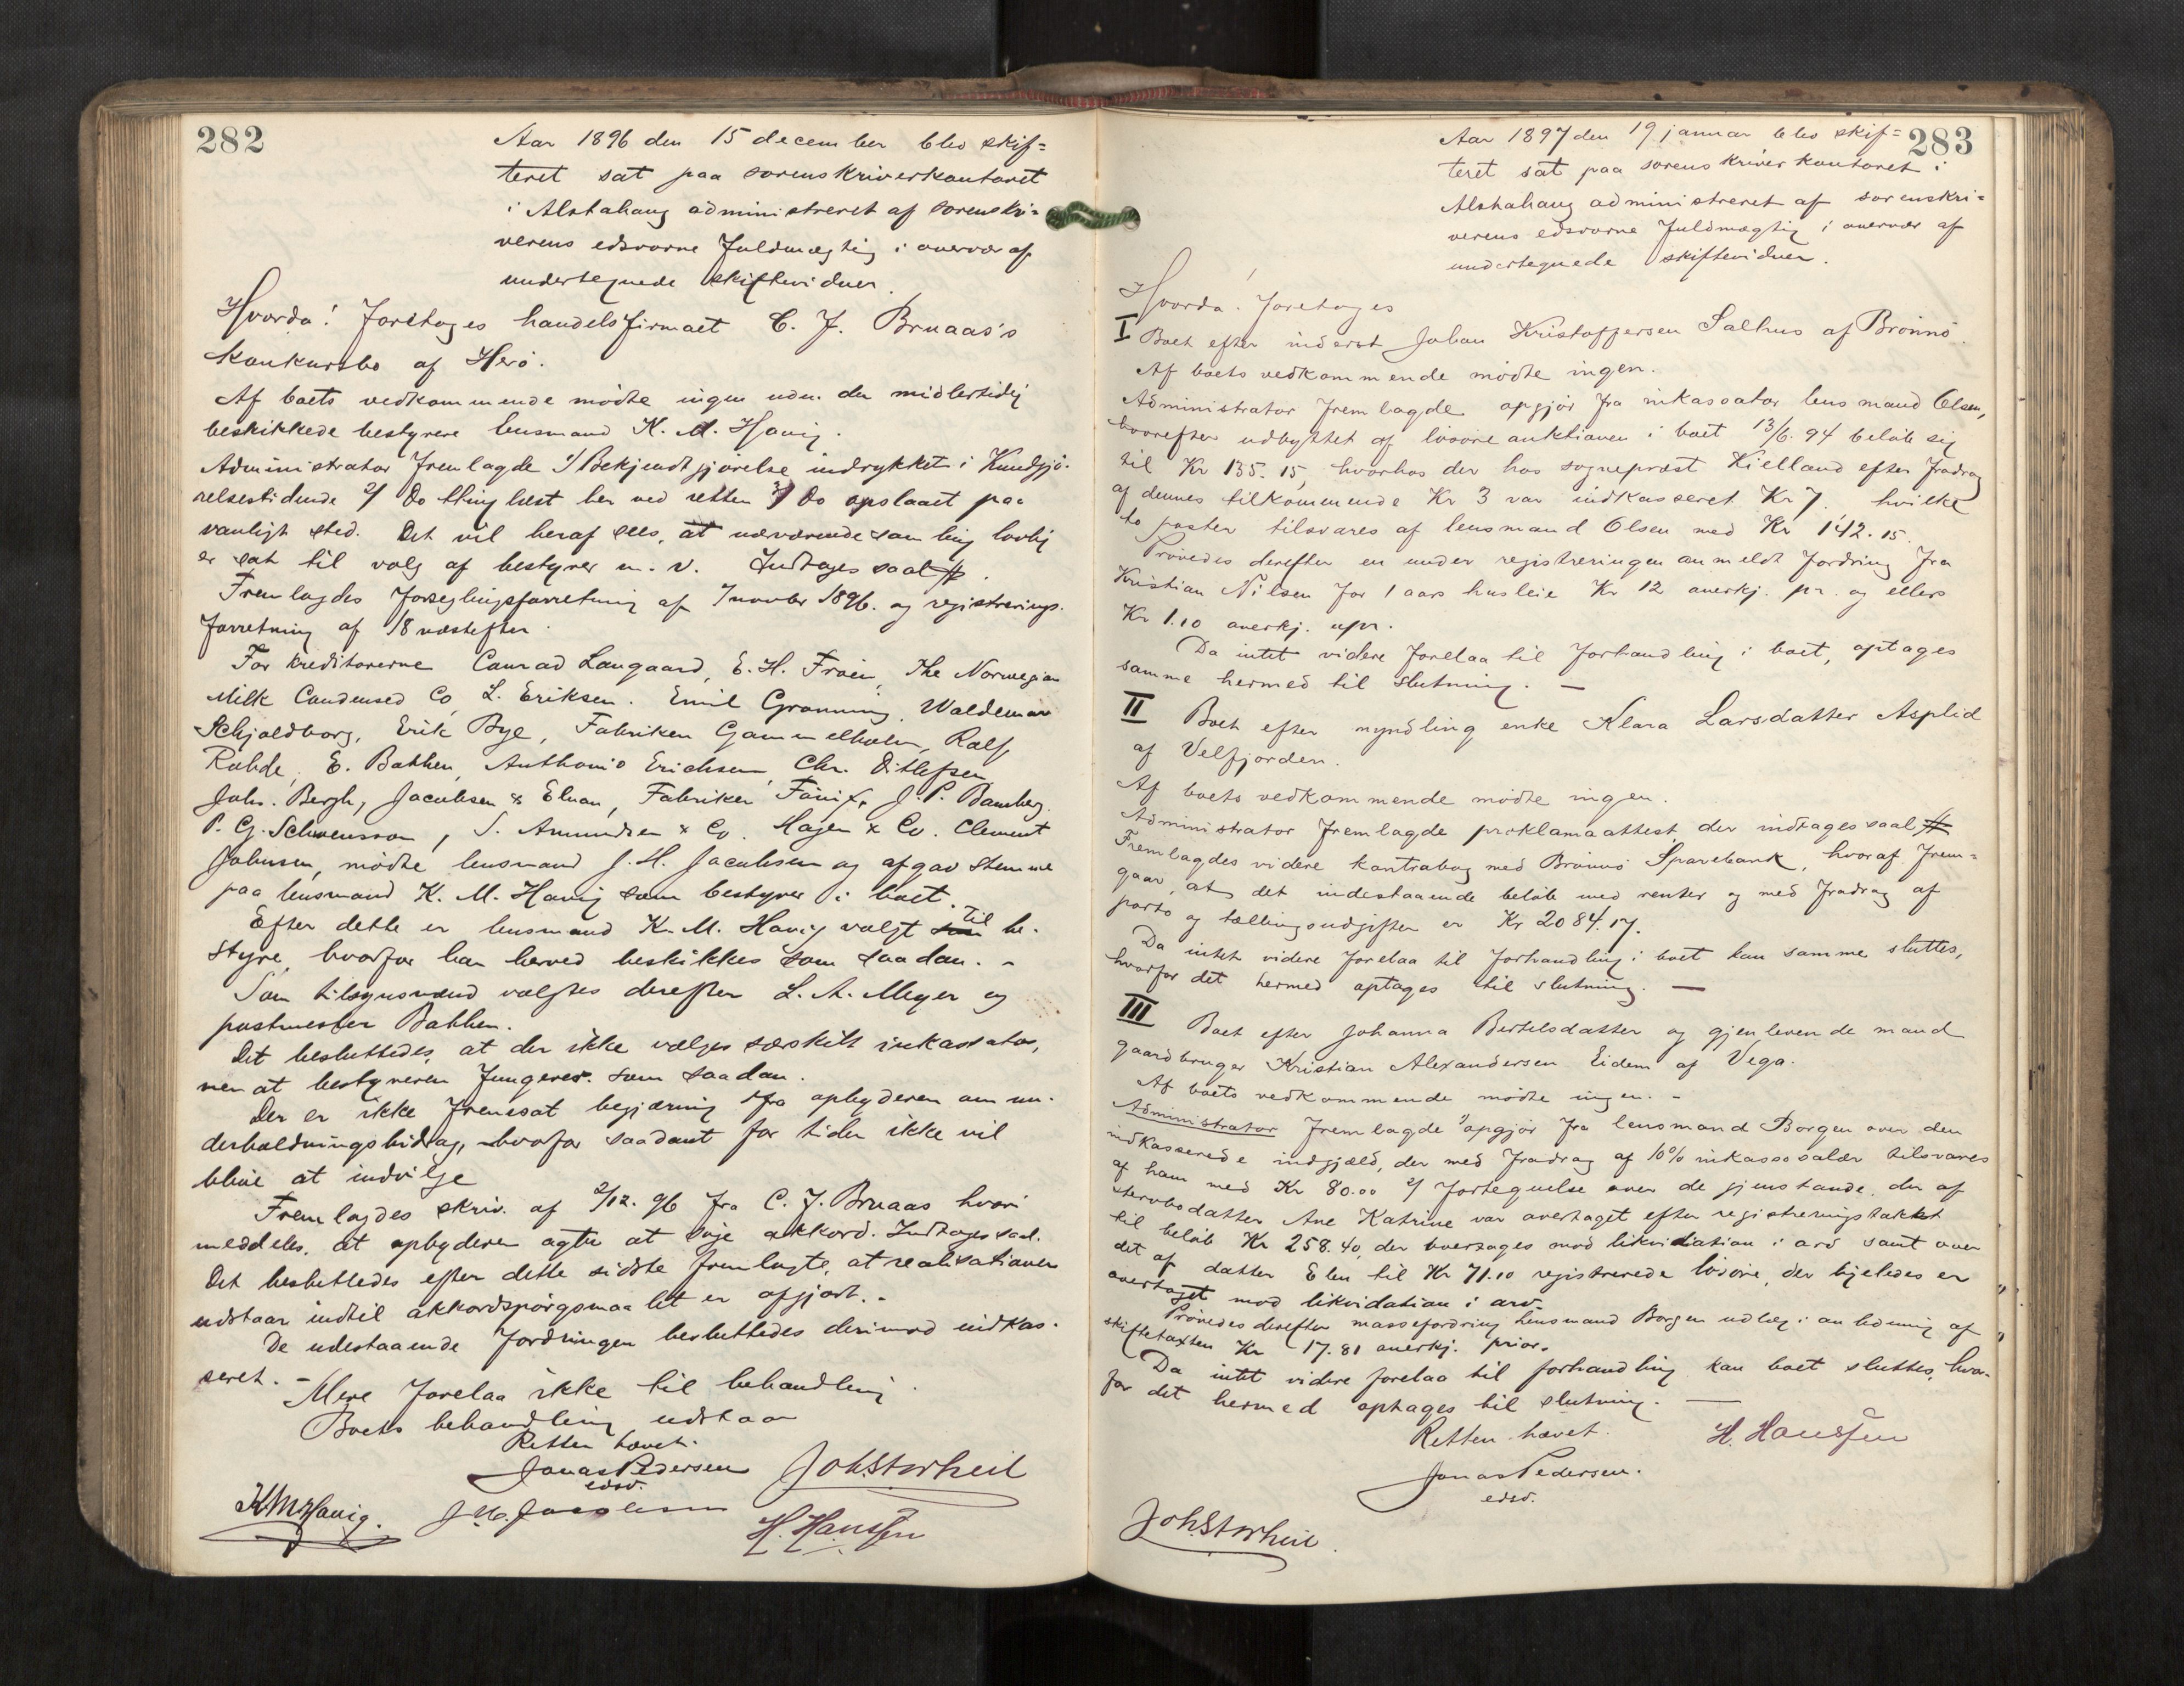 282
Aar 1896 den 15 december blev skif=
teret sat paa sorenskriverkontoret
i Alstahaug administreret af sorenskri=
verens edsvorne fuldmægtig i overvær af
undertegnede skiftevidner.
Hvorda! Foretoges handelsfirmaet C. J. Bruaas's
konkursbo af Herö.
Af boets vedkommende mödte ingen udn. den midlertidig
beskikkede bestyrere lensmand K. M. Havig.
Administrator fremlagde 1/ Bekjendtgjörelse indrykket i Kundgjö-
relsestidende 2/ Do thinglæst her ved retten 3/ Do opslaaet paa
vanligt sted. Det vil heraf sees, at nærværende samling lovlig
er sat til valg af bestyrer m. v. Indtages saal.
Fremlagdes forseglingsforretning af 7 novbr 1896. og registrerings-
forretning af 18 næstefter.
For kreditorerne Conrad Langaard, E. H. Froen, The Norwegian
Milk Condensed Co, L. Eriksen. Emil Grønning. Waldemar
Schjoldborg, Erik Bye, Fabriken Gammelholm, Ralf
Rohde, E. Bakken, Anthonio Erichsen, Chr. Ditlefsen
Johs. Bergh, Jacobsen & Elnan, Fabriken Fönix, J. P. Bamberg.
P. G. Schwensson, S. Amundsen & Co. Hagen & Co. Clement
Johnsen, mödte lensmand J. H. Jacobsen og afgav stemme
paa lensmand K. M. Havig som bestyrer i boet.
Efter dette er lensmand K. M. Havig valgt som til be-
styre, hvorfor han herved beskikkes som saadan. -
Som tilsynsmænd valgtes derefter L. A. Meyer og
postmester Bakken.
Det besluttedes, at der ikke vælges særskilt inkassator,
men at bestyreren fungerer. som saadan.
Der er ikke fremsat begjæring fra opbyderen om un-
derholdningsbidrag, hvorfor saadant for tiden ikke vil
blive at indvilge
Fremlagdes skriv. af 2/12. 96 fra C. J. Bruaas hvori
meddeles, at opbyderen agter at söge akkord. Indtages saal.
Det besluttedes efter dette sidste fremlagte, at realisationen
udstaar indtil akkordspörgsmaalet er afgjort. -
De udestaaende fordringer besluttedes derimod indkas-
seret. -
Mere forelaa ikke til behandling.
Boets behandling udstaar
Retten hævet.
Jonas Pedersen Joh Storheil
edsv.
K M Havig. J. H. Jacobsen
H. Hanssen
283
Aar 1897 den 19 januar blev skif=
teret sat paa sorenskriverkontoret i
Alstahaug administreret af sorenskri=
verens edsvorne fuldmægtig i overvær af
undertegnede skiftevidner.
Hvorda! Foretoges
I Boet efter inderst Johan Kristoffersen Salhus af Brönnö.
Af boets vedkommende mödte ingen.
Administrator fremlagde opgjör fra inkassator lensmand Olsen,
hvorefter udbyttet af lösöreauktionen i boet 13/6. 94 belöb sig
til Kr 135. 15, hvorhos der hos sognepræst Kielland efter fradrag
af dennes tilkommende Kr 3 var indkasseret Kr 7. hvilke
to poster tilsvares af lensmand Olsen med Kr 142. 15.
Prövedes derefter en under registreringen anmeldt fordring fra
Kristian Nilsen for 1 aars husleie Kr 12 anerkj. pr. og ellers
Kr 1.10 anerkj. upr.
Da intet videre forelaa til forhandling i boet, optages
samme hermed til slutning. -
II Boet efter myndling enke Klara Larsdatter Asplid
af Velfjorden.
Af boets vedkommende mödte ingen.
Administrator fremlagde proklamaattest der indtages saal.
Fremlagdes videre kontrabog med Brönnö Sparebank, hvoraf frem=
gaar, at det indestaaende belöb med renter og med fradrag af
porto og tællingsudgifter er Kr 2084.17.
Da intet videre forelaa til forhandling i boet kan samme sluttes,
hvorfor det hermed optages til slutning. -
III Boet efter Johanna Bertelsdatter og gjenlevende mand
gaardbruger Kristian Alexandersen Eidem af Vega.
Af boets vedkommende mödte ingen. -
Administrator fremlagde 1/ opgjör fra lensmand Borgen over den
indkasserede indgjæld, der med fradrag af 10% inkassosalær tilsvares
af ham med Kr 80.00 2/ fortegnelse over de gjenstande, der af
stervbodatter Ane Katrine var overtaget efter registreringstakst
til belöb Kr 258. 40, der overtages mod likvidation i arv samt over
det af datter Elen til Kr 71.10 registrerede lösöre, der ligeledes er
overtaget mod likvidation i arv.
Prövedes derefter massefordring lensmand Borgen udlæg i anledning af
skiftetaxten Kr 17.81 anerkj. prior.
Da intet videre forelaa til forhandling kan boet sluttes, hvor-
for det hermed optages til slutning. -
Retten hævet. H. Hanssen
Jonas Pedersen.
edsv.
Joh Storheil.